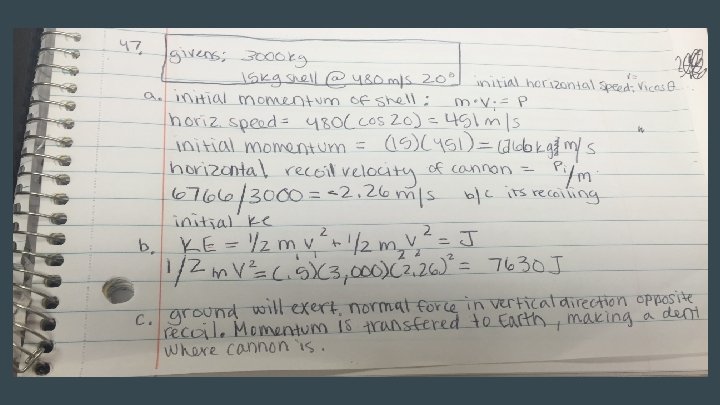 47. givens: 3000kg
15kg shell @ 480m/s 20° initial horizontal speed: Vicosθ
a. initial momentum of shell: m·vi = P
horiz. speed = 480(cos 20) = 451 m/s
initial momentum = (15)(451) = m/s
horizontal recoil velocity of cannon = Pi/m
6766/3000 = -2.26 m/s b/c its recoiling
initial ke
b. KE = 1/2 m v² + 1/2 m₂ v₂² = J
1/2 mv² = (.5)(3,000)(2.26)² = 7630 J
c. ground will exert normal force in vertical direction opposite
recoil. Momentum is transfered to Earth, making a dent
where cannon is.